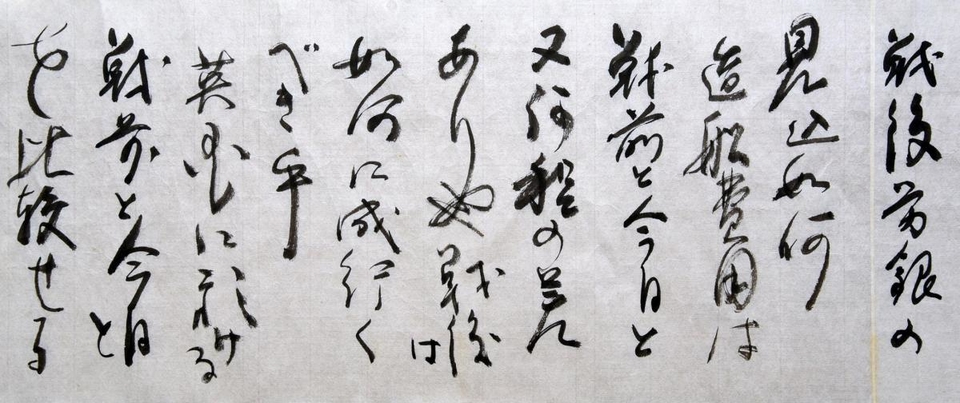 戦後労銀の
見込如何
造船費用は
戦前と今日と
又何程の差
ありや戦後は
如何に成行く
べき乎
英国に於ける
戦前と今日と
を比較せる